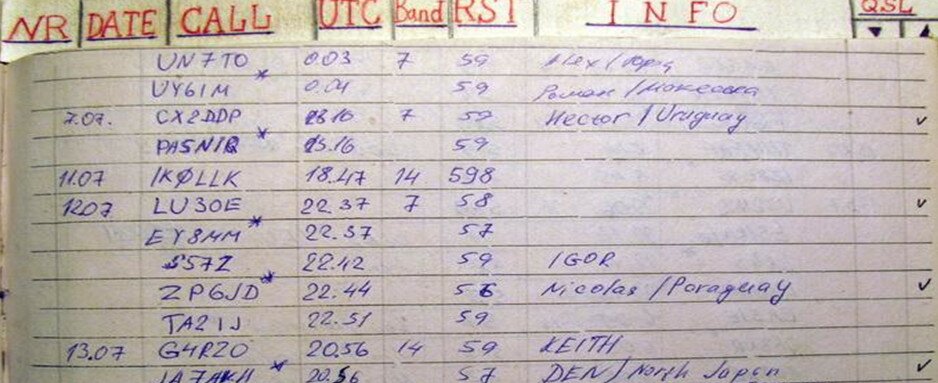 NR DATE CALL UTC Band RST INFO QSL
UN7TO 0.03 7 59 Alex /
UY6IM * 0.04 59 Роман / Макеевка
7.07. CX2DDP 23.16 7 59 Hector / Uruguay ✓
PA5NIQ * 23.16 59
11.07 IKØLLK 18.47 14 598
12.07 LU3OE 22.37 7 58 ✓
EY8MM * 22.37 57
S57Z 22.42 59 IGOR
ZP6JD * 22.44 56 Nicolas / Paraguay ✓
TA2IJ 22.51 59
13.07 G4RZO 20.56 14 59 KEITH
JA7AKH * 20.56 57 DEN / North Japan ✓